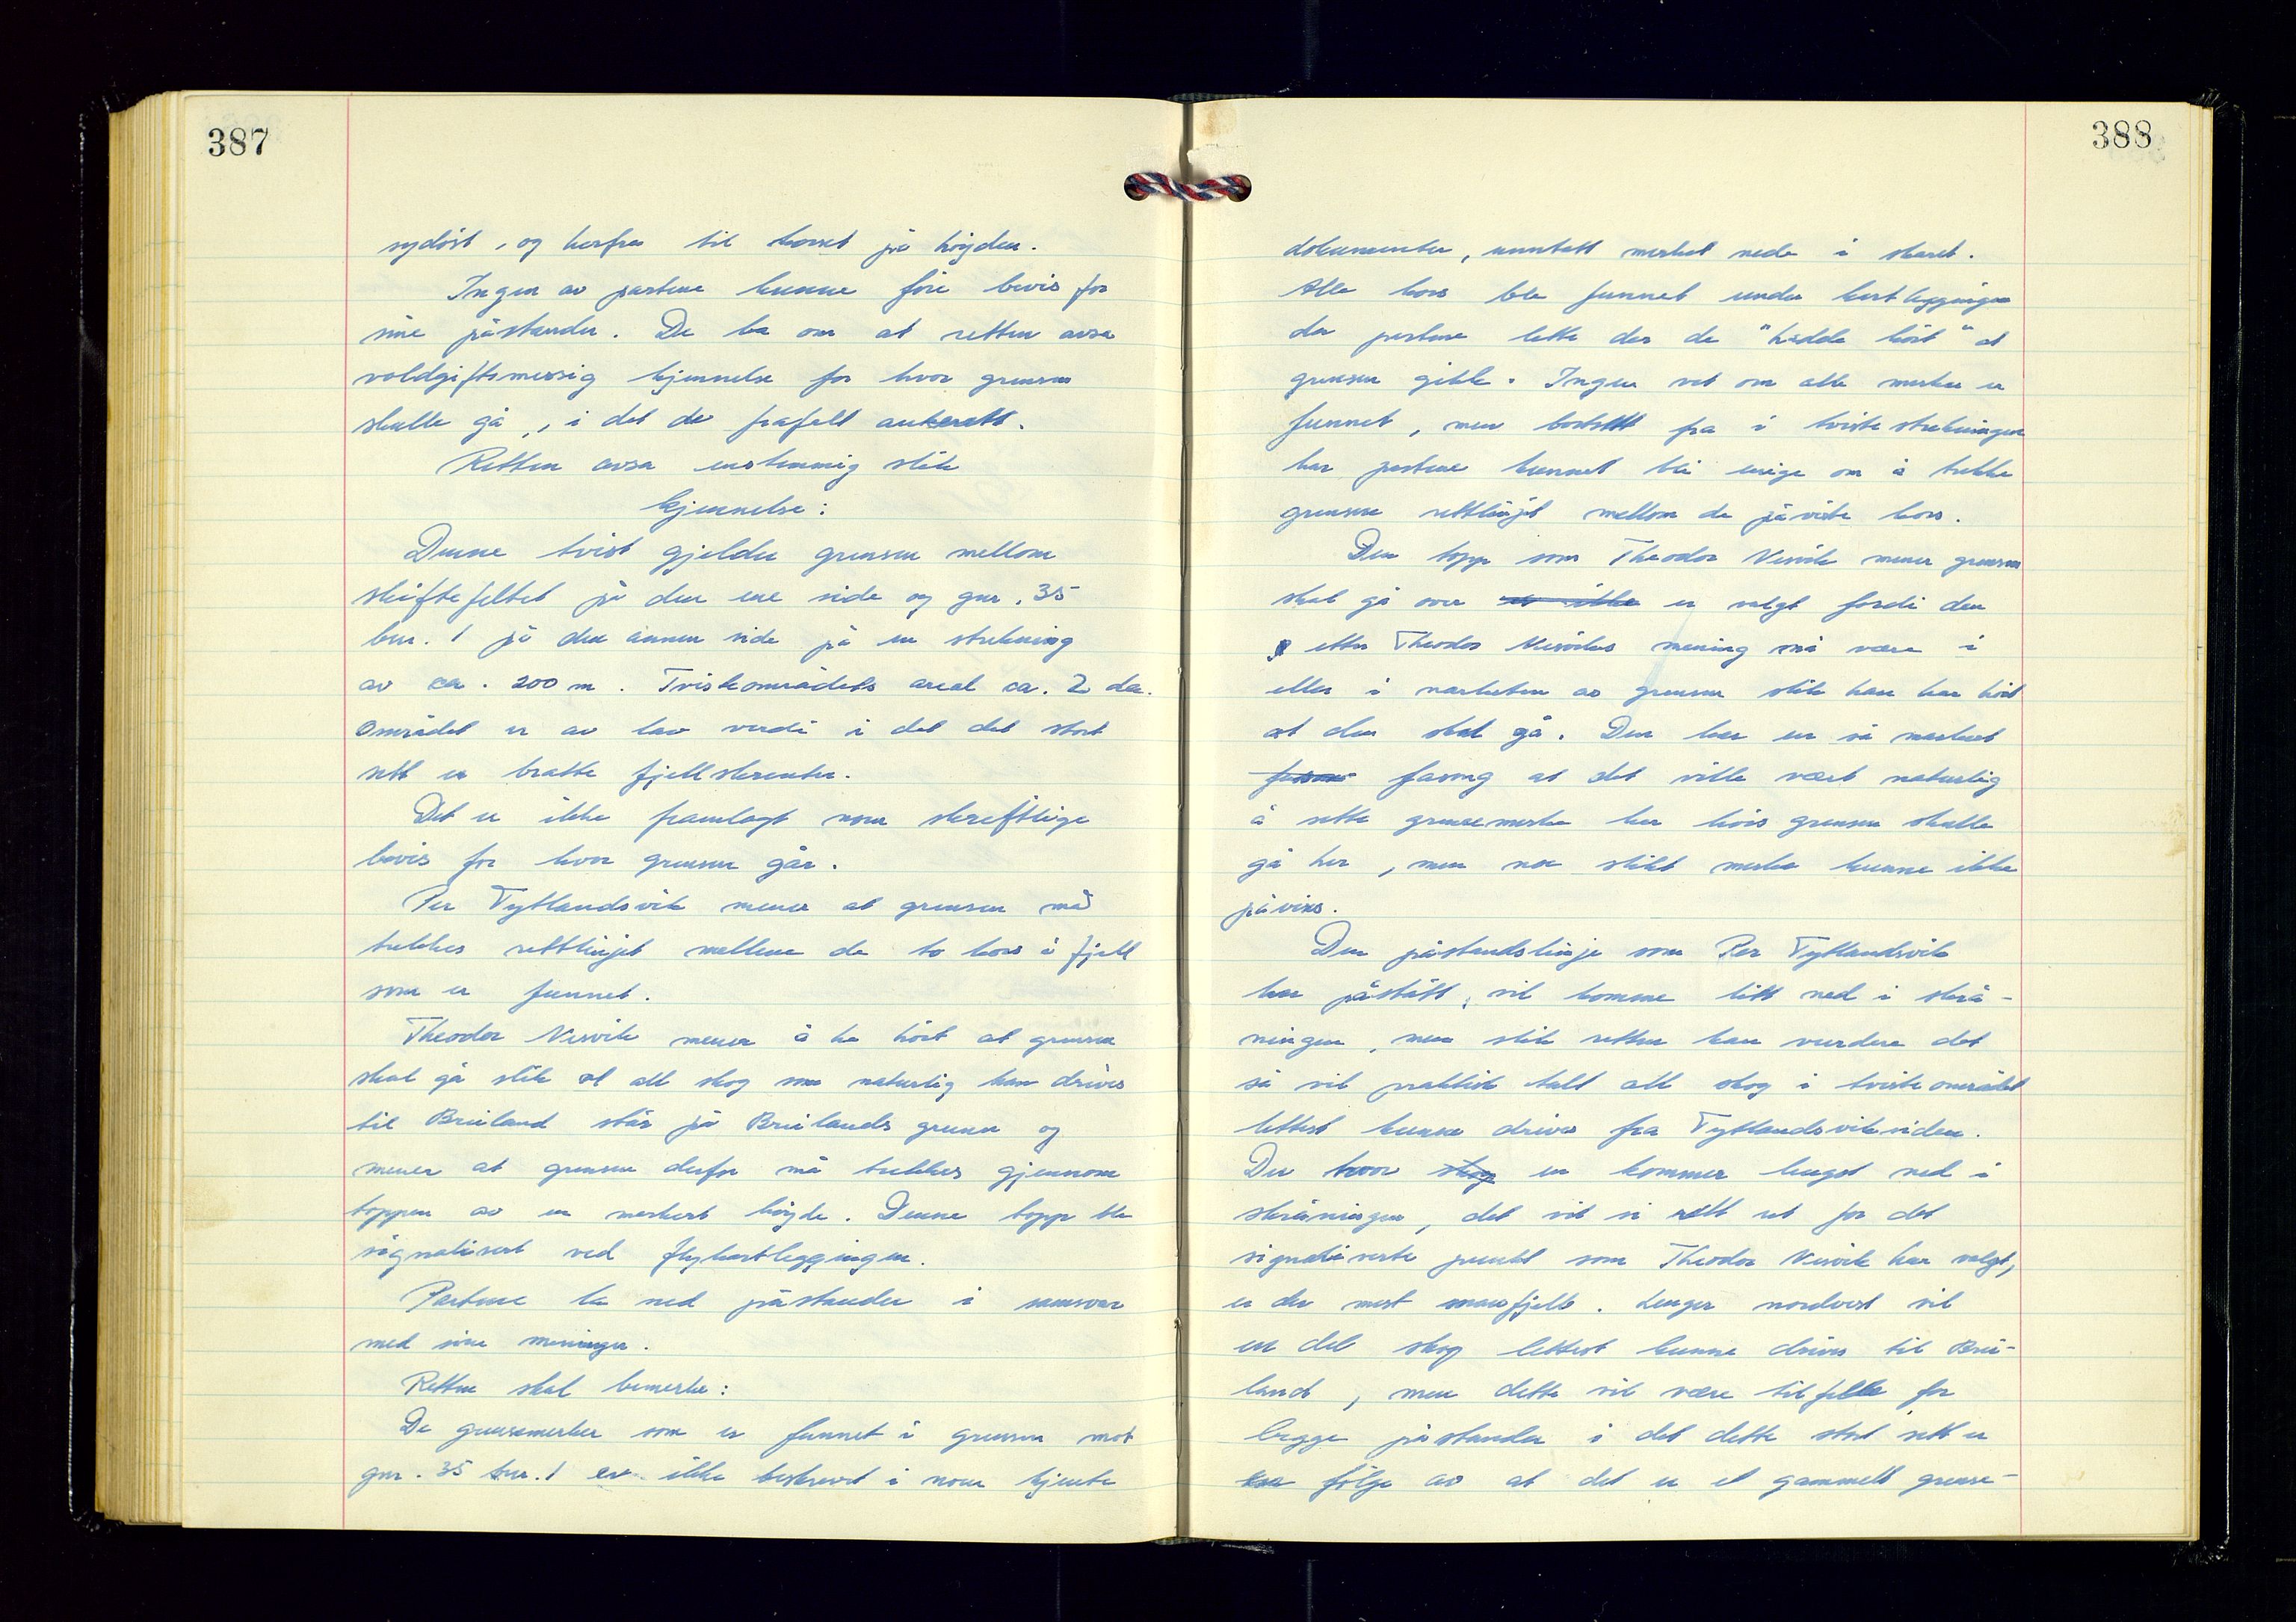 387
sydöst, og herfra til korset på höyden.
Ingen av partene kunne före bevis for
sine påstander. De ba om at retten avsa
voldgiftsmessig kjennelse for hvor grensen
skulle gå, i det de frafalt ankerett.
Retten avsa enstemmig slik
kjennelse:
Denne tvist gjelder grensen mellom
skiftefeltet på den ene side og gnr. 35
bnr. 1 på den annen side på en strekning
av ca. 200 m. Tvisteområdets areal ca. 2 da.
Området er av lav verdi i det det stort
sett er bratte fjellskrenter.
Det er ikke framlagt noen skriftlige
bevis for hvor grensen går.
Per Tytlandsvik mener at grensen må
trekkes rettlinjet mellom de to kors i fjell
som er funnet.
Theodor Nesvik mener å ha hört at grensen
skal gå slik at all skog som naturlig kan drives
til Briland står på Brilands grunn og
mener at grensen derfor må trekkes gjennom
toppen av en markert höyde. Denne topp ble
signalisert ved flykartleggingen.
Partene la ned påstander i samsvar
med sine meninger.
Retten skal bemerke:
De grensemerker som er funnet i grensen mot
gnr. 35 bnr. 1 er ikke beskrevet i noen kjente
388
dokumenter, unntatt merket nede i skaret.
Alle kors ble funnet under kartleggingen
da partene lette der de "hadde hört" at
grensen gikk. Ingen vet om alle merker er
funnet, men bortsett fra i tvistestrekningen
har partene kunnet bli enige om å trekke
grensen rettlinjet mellom de påviste kors.
Den topp som Theodor Nesvik mener grensen
skal gå over er ikke er valgt fordi den
etter Theodor Nesviks mening må være i
eller i nærheten av grensen slik han har hört
at den skal gå. Den har en så markert
fasong at det ville vært naturlig
å sette grensemerke her hvis grensen skulle
gå her, men noe slikt merke kunne ikke
påvises.
Den påstandslinje som Per Tytlandsvik
har påstått, vil komme litt ned i skrå-
ningen, men slik retten kan vurdere det
så vil praktisk talt all skog i tvisteområdet
lettest kunne drives fra Tytlandsviksiden.
Der hvor skog en kommer lengst ned i
skråningen, det vil si rett ut for det
signaliserte punkt som Theodor Nesvik har valgt,
er der mest snaufjell. Lenger nordvest vil
en del skog lettest kunne drives til Bri-
land, men dette vil være tilfelle for
begge påstander i det dette stort sett er
en fölge av at det er et gammelt grense-